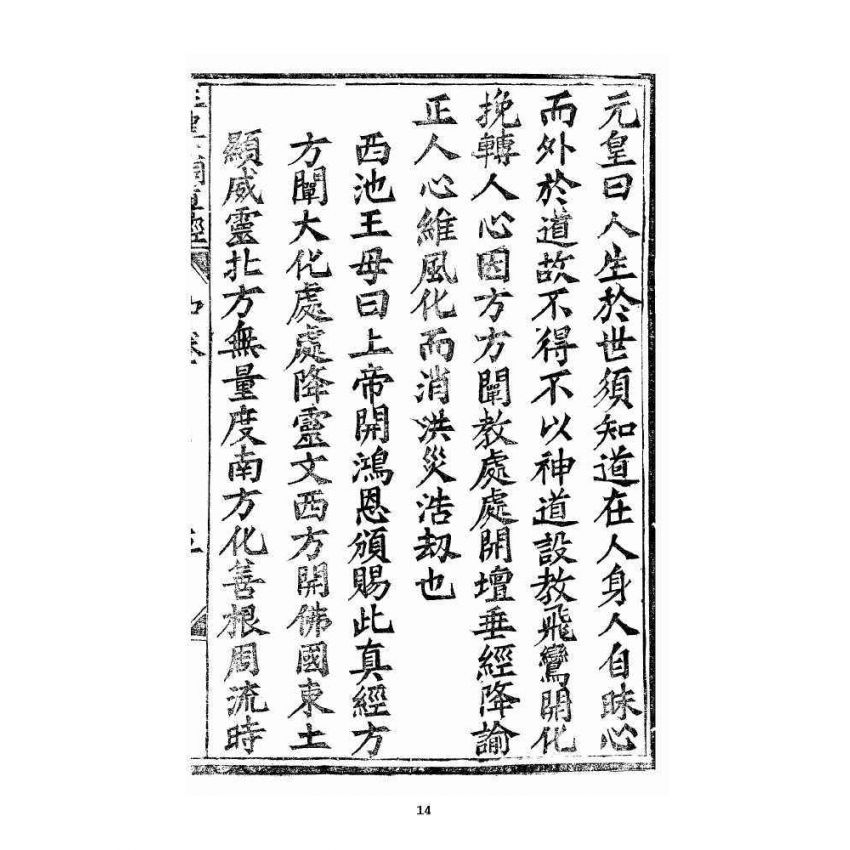 元皇曰人生於世須知道在人身人自昧心
而外於道故不得不以神道設教飛鸞開化
挽轉人心因方方闡教處處開壇垂經降諭
正人心維風化而消洪災浩刼也
西池王母曰上帝開鴻恩頒賜此真經方
方闡大化處處降靈文西方開佛國東土
顯威靈北方無量度南方化善根周流時
14